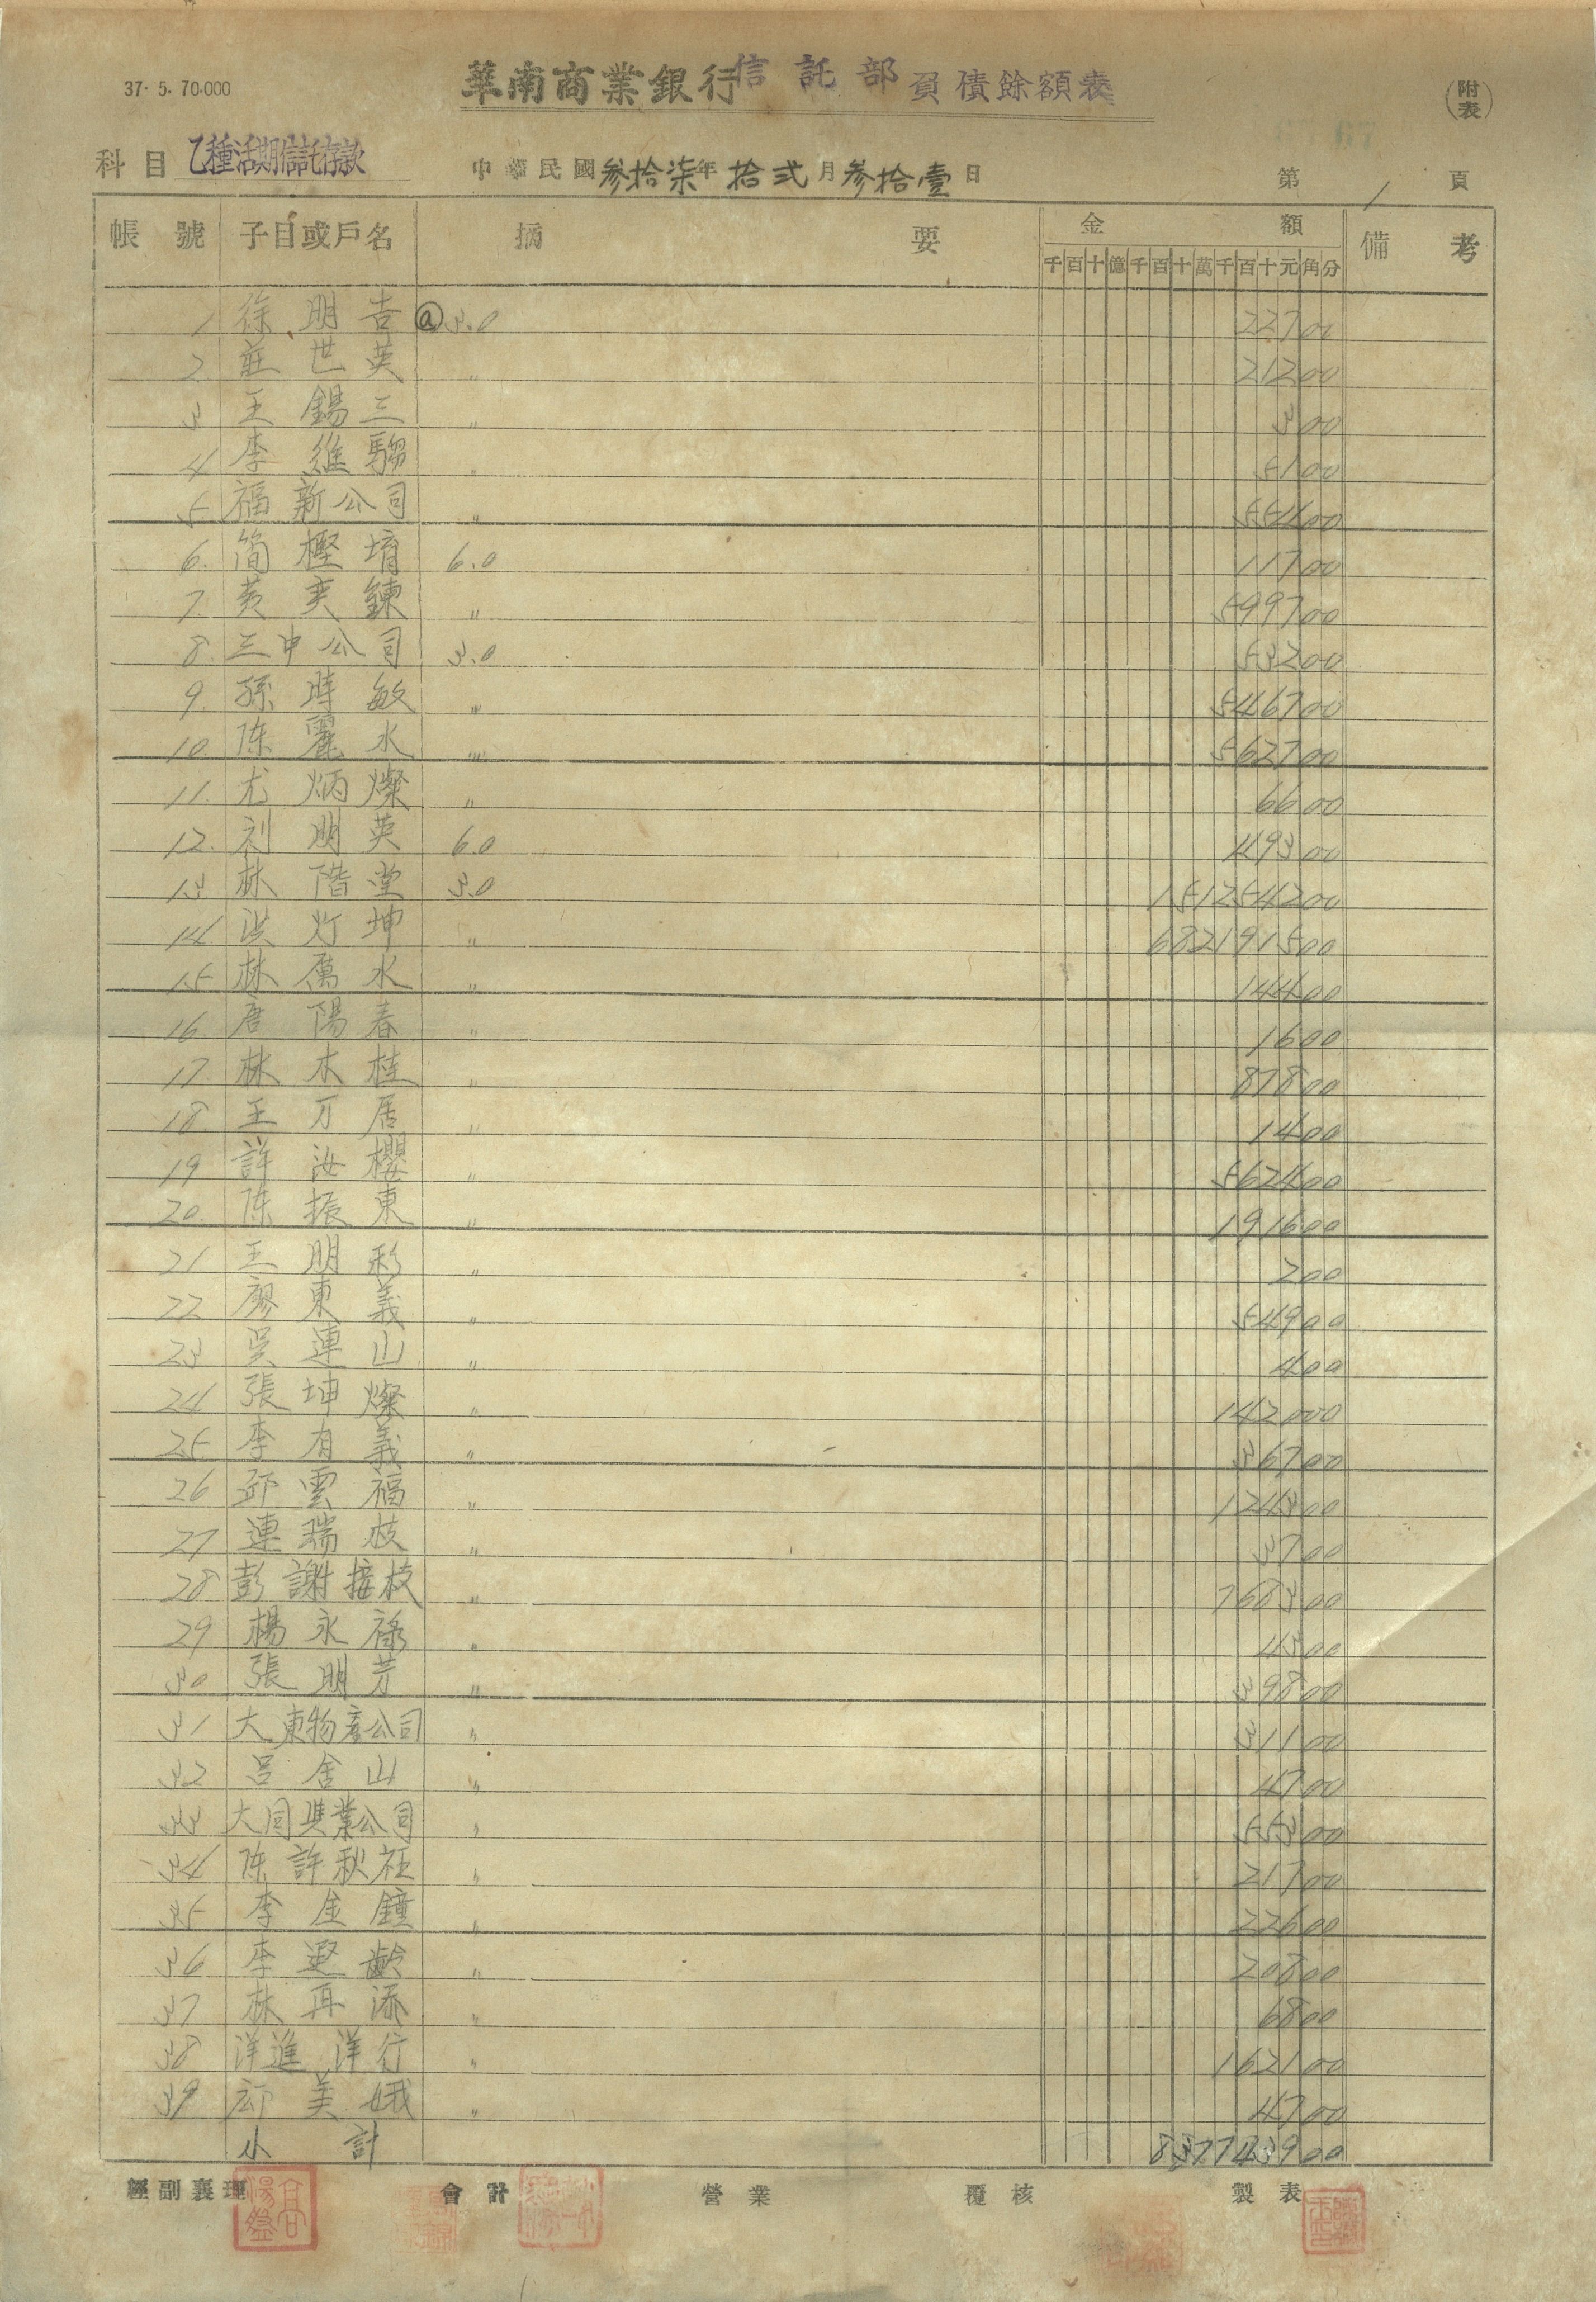 37. 5. 70.000
華南商業銀行信託部負債餘額表
(附表)
67
科目 乙種活期信託存款 中華民國參拾柒年拾弍月參拾壹日 第1頁
帳號 子目或戶名 摘要 金額 備考
千百十億千百十萬千百十元角分
1 徐明吉 @3.0 22700
2 莊世英 〃 21200
3 王錫三 〃 300
4 李維騶 〃 5100
5 福新公司 〃 55400
6. 簡樫堉 6.0 11700
7. 黃奕鍊 〃 599700
8. 三申公司 3.0 53200
9. 孫時敏 〃 546700
10 陈麗水 〃 562700
11. 尤炳燦 〃 6600
12. 刘明英 6.0 49300
13 林階堂 3.0 151254200
14 洪灯坤 〃 682191500
15 林萬水 〃 14400
16 唐陽春 〃 1600
17 林木桂 〃 87800
18 王万居 〃 1400
19 許汝櫻 〃 562400
20 陈振東 〃 191600
21 王明彩 〃 200
22 廖東義 〃 54900
23 吳連山 〃 400
24 張坤燦 〃 142000
25 李有義 〃 36700
26 邱雲福 〃 124300
27 連瑞枝 〃 3700
28 彭謝接枝 〃 768300
29 楊永祿 〃 4300
30 張明芳 〃 39800
31 大東物產公司 〃 31100
32 呂舍山 〃 4700
33 大同興業公司 〃 55300
34 陈許秋衽 〃 21700
35 李金鐘 〃 22600
36 李遐齡 〃 20800
37 林再添 〃 6800
38 洋進洋行 〃 162100
39 邱美娥 〃 4700
小計 837743900
經副襄理 會計 營業 覆核 製表